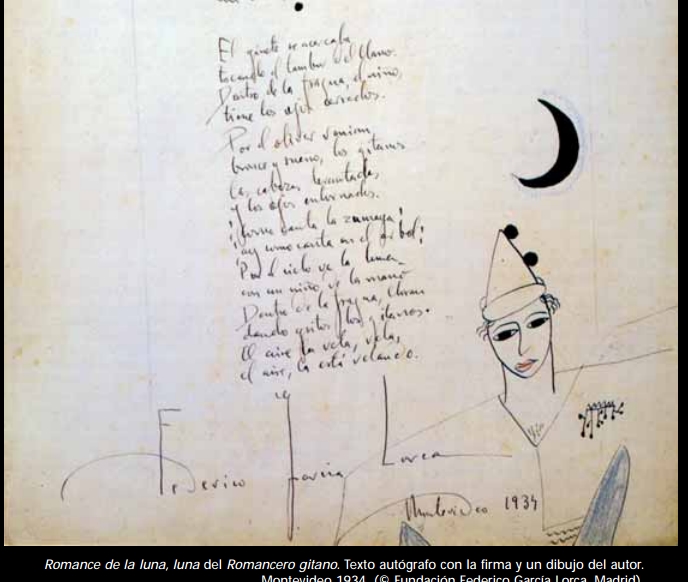 El ginete se acercaba
tocando el tambor del llano.
Dentro de la fragua, el niño,
tiene los ojos cerrados.
Por el olivar venian,
bronce y sueño, los gitanos
las cabezas levantadas,
y los ojos entornados.
¡Como canta la zumaya!
¡ay como canta en el arbol!
Por el cielo va la luna
con un niño de la mano
Dentro de la fragua, lloran
dando gritos los gitanos.
El aire la vela, vela,
el aire, la está velando.
Federico García Lorca
Montevideo 1934
Romance de la luna, luna del Romancero gitano. Texto autógrafo con la firma y un dibujo del autor.
Montevideo 1934. (© Fundación Federico García Lorca. Madrid)